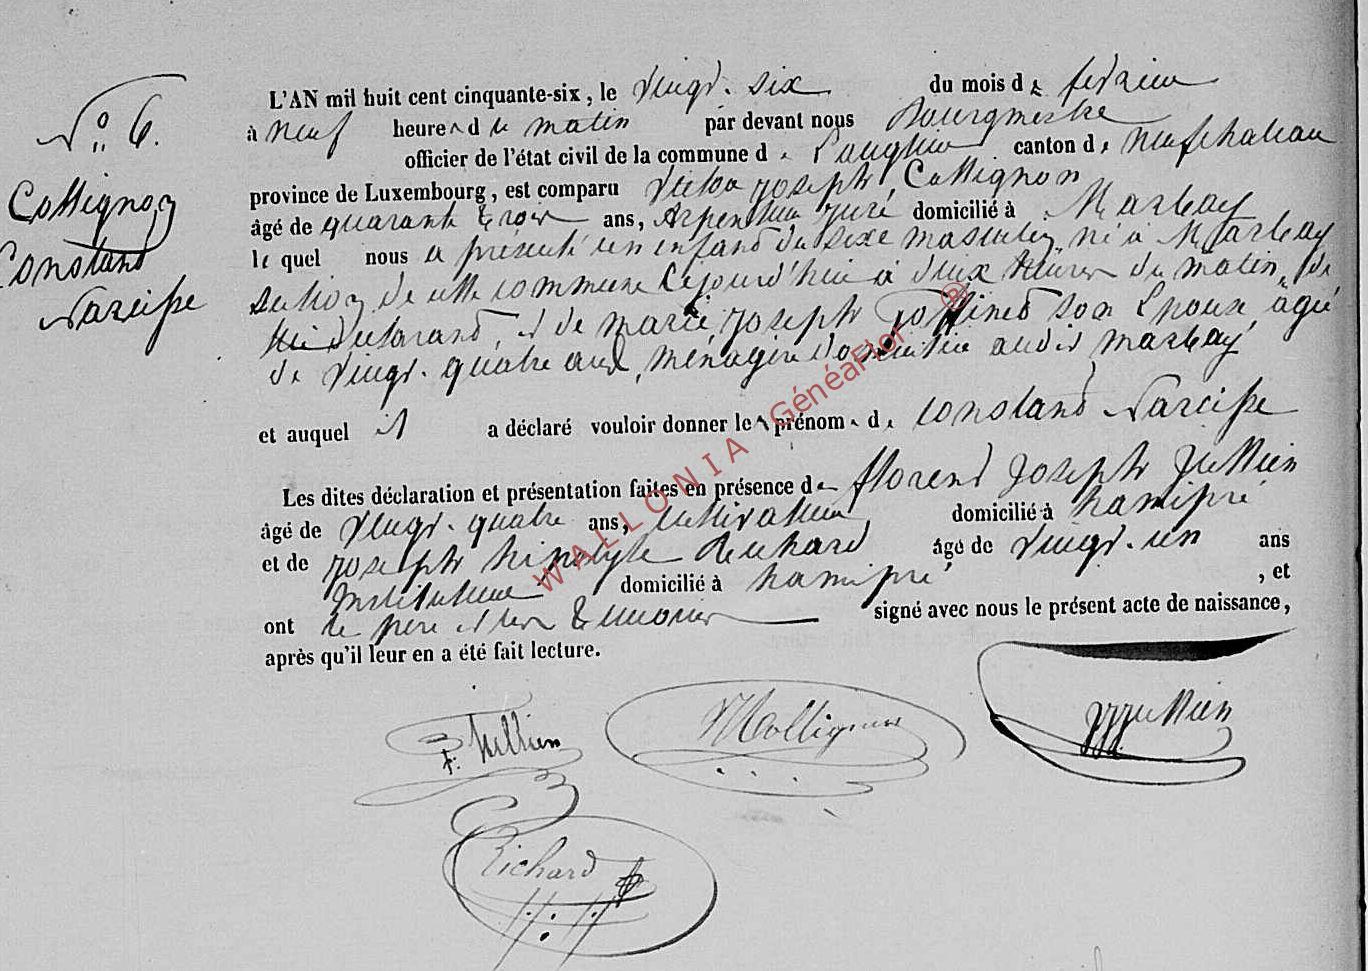 N° 6.
Collignon
Constand
Narcisse
L'AN mil huit cent cinquante-six, le vingt-six du mois de février
à neuf heures du matin par devant nous Bourgmestre
officier de l'état civil de la commune de Longlier canton de Neufchateau
province de Luxembourg, est comparu Victor Joseph Collignon
âgé de quarante trois ans, Arpenteur juré domicilié à Marbay
le quel nous a présenté un enfant du sexe masculin, né à Marbay
section de cette commune cejourd'hui à deux heures du matin, de
lui déclarant, et de marie joseph son Epouse, âgée
de vingt-quatre ans, ménagère domiciliée audit marbay
et auquel il a déclaré vouloir donner les prénoms de constand Narcisse
Les dites déclaration et présentation faites en présence de florend Joseph Jullien
âgé de vingt-quatre ans, cultivateur domicilié à hamipré
et de joseph hipolyte Richard âgé de vingt-un ans
Instituteur domicilié à hamipré, et
ont le père et les témoins signé avec nous le présent acte de naissance,
après qu'il leur en a été fait lecture.
F. Jullien
VJCollignon
Jullien
Richard
WALLONIA GénéaFlor ®